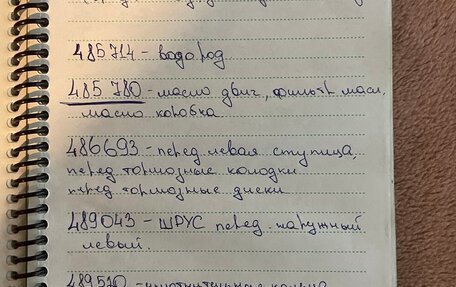 485714 - водород
485780 - масло двиг, фильтр масл,
масло коробка
486693 - перед левая ступица,
перед тормозные колодки
перед тормозные диски
489043 - ШРУС перед наружный
левый.
489510 - уплотнительные кольца